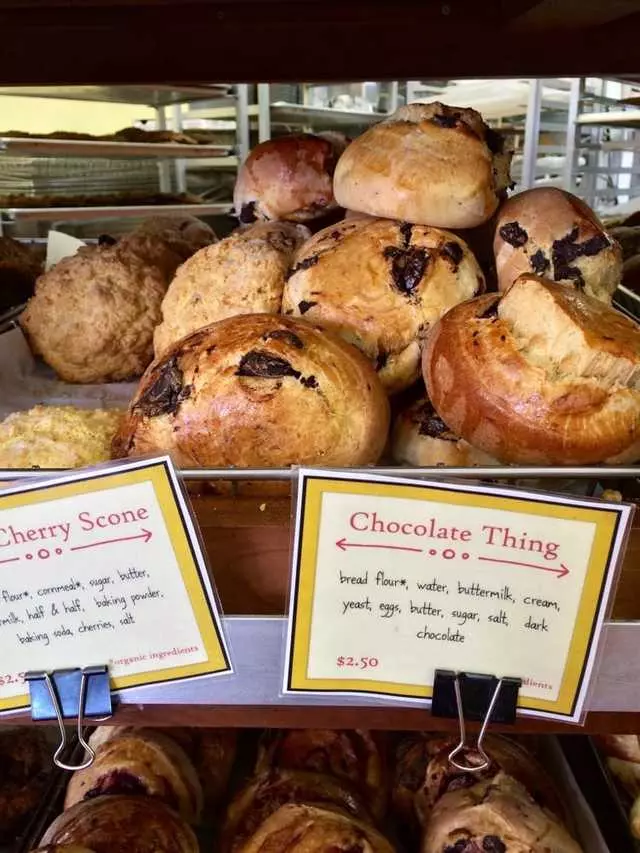 Cherry Scone
flour*, cornmeal*, sugar, butter,
half & half, baking powder,
baking soda, cherries, salt
*organic ingredients
Chocolate Thing
bread flour*, water, buttermilk, cream,
yeast, eggs, butter, sugar, salt, dark
chocolate
$2.50